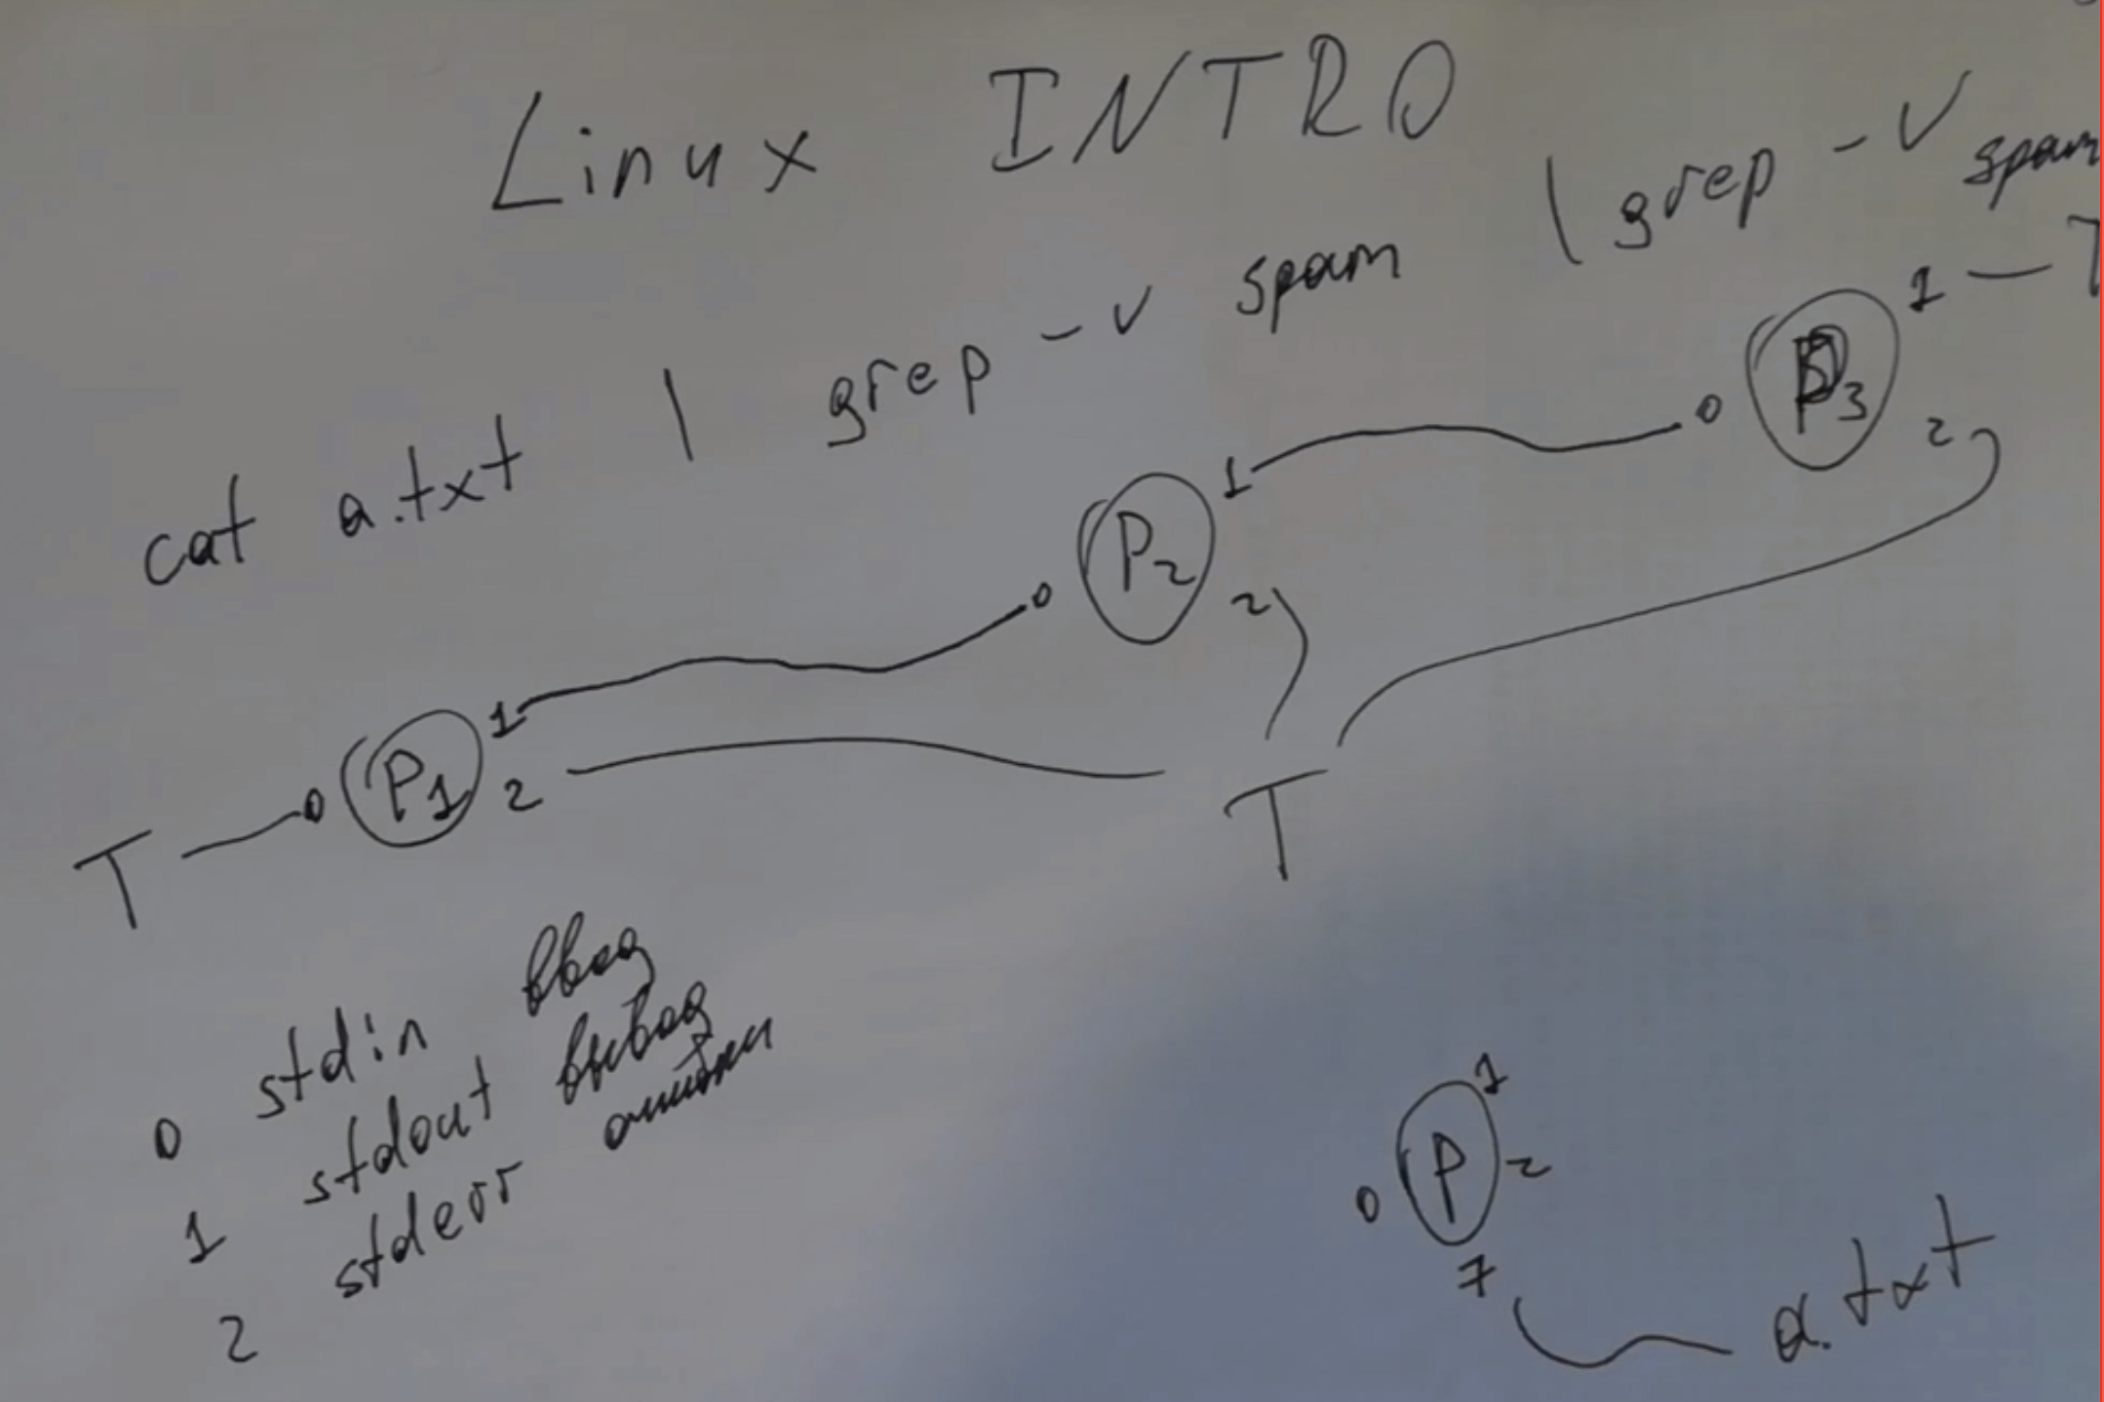 Linux INTRO
cat a.txt | grep -v spam | grep -v spam
0 P3 1 — T
2
0 P2 1
2
T 0 P1 1
2
T
0 stdin ввод
1 stdout вывод
2 stderr ошибки
0 P 1
2
7
a.txt